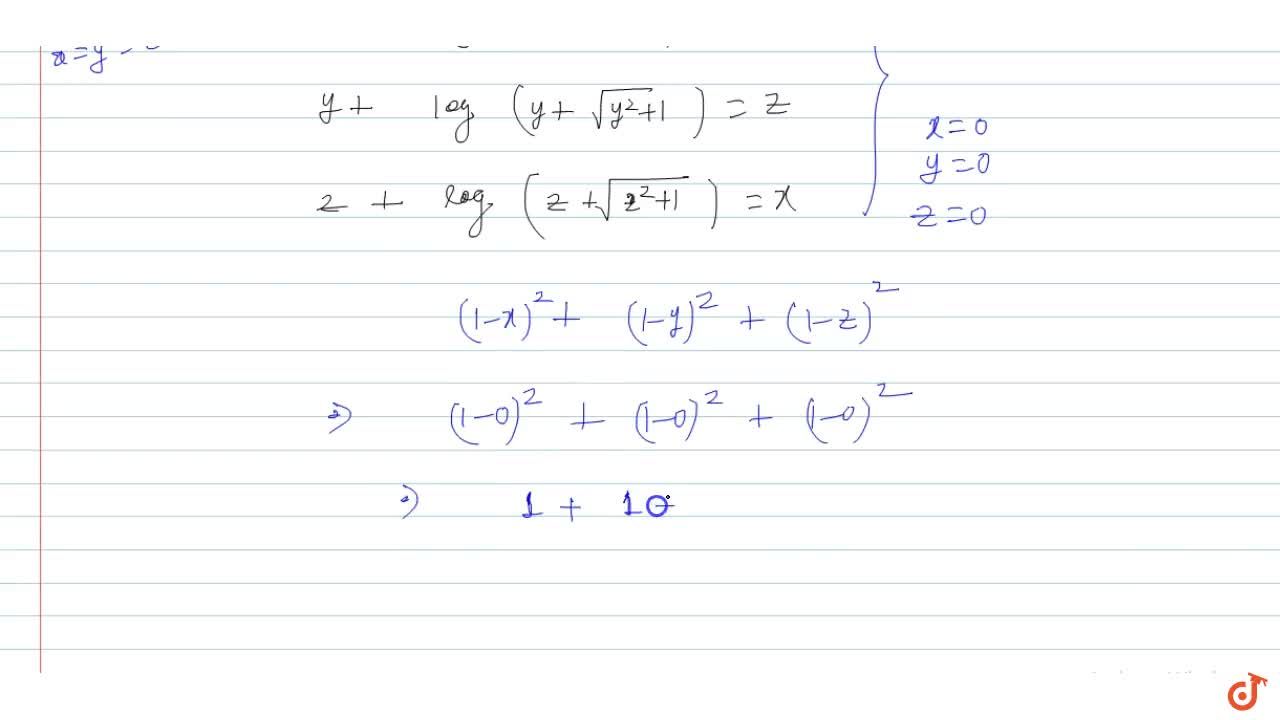 x=y
y + log (y + √(y²+1)) = z
x=0
y=0
z + log (z + √(z²+1)) = x
z=0
(1-x)² + (1-y)² + (1-z)²
⇒ (1-0)² + (1-0)² + (1-0)²
⇒ 1 + 1